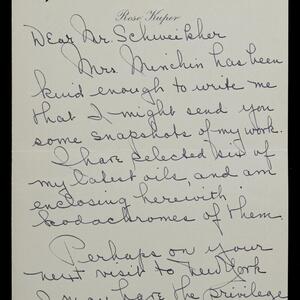 Rose Kuper
Dear Mr. Schweikher
Mrs. Minchin has been
kind enough to write me
that I might send you
some snapshots of my work.
I have selected six of
my latest oils, and am
enclosing herewith
kodachromes of them.
Perhaps on your
next visit to New York
I may have the privilege